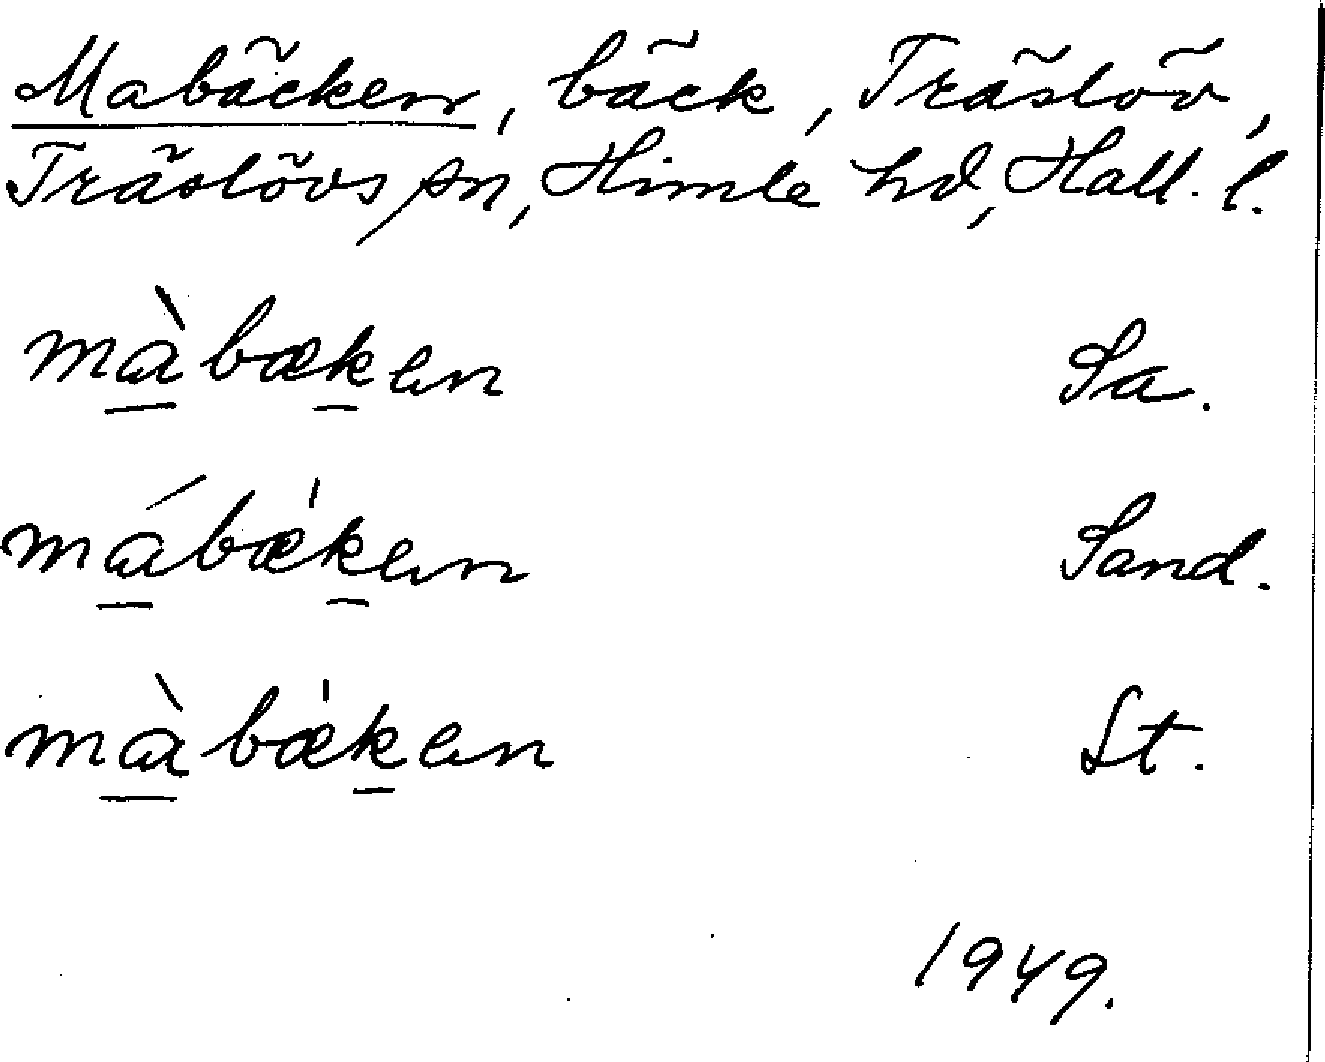 Mabäcken, bäck, Träslöv,
Träslövs sn, Himle hd, Hall. l.
màbækən Sa.
mábæ'kən Sand.
màbæ'kən St.
1949.